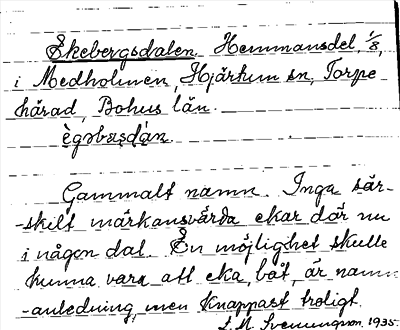 Ekebergsdalen. Hemmansdel, 1/8,
i Medholmen, Hjärtum sn, Torpe
härad, Bohus län.
ègəbæʂdȧ́n.
Gammalt namn. Inga sär-
-skilt märkansvärda ekar där nu
i någon dal. En möjlighet skulle
kunna vara att eka, båt, är namn-
-anledning, men knappast troligt.
J. M. Svenungson. 1935.